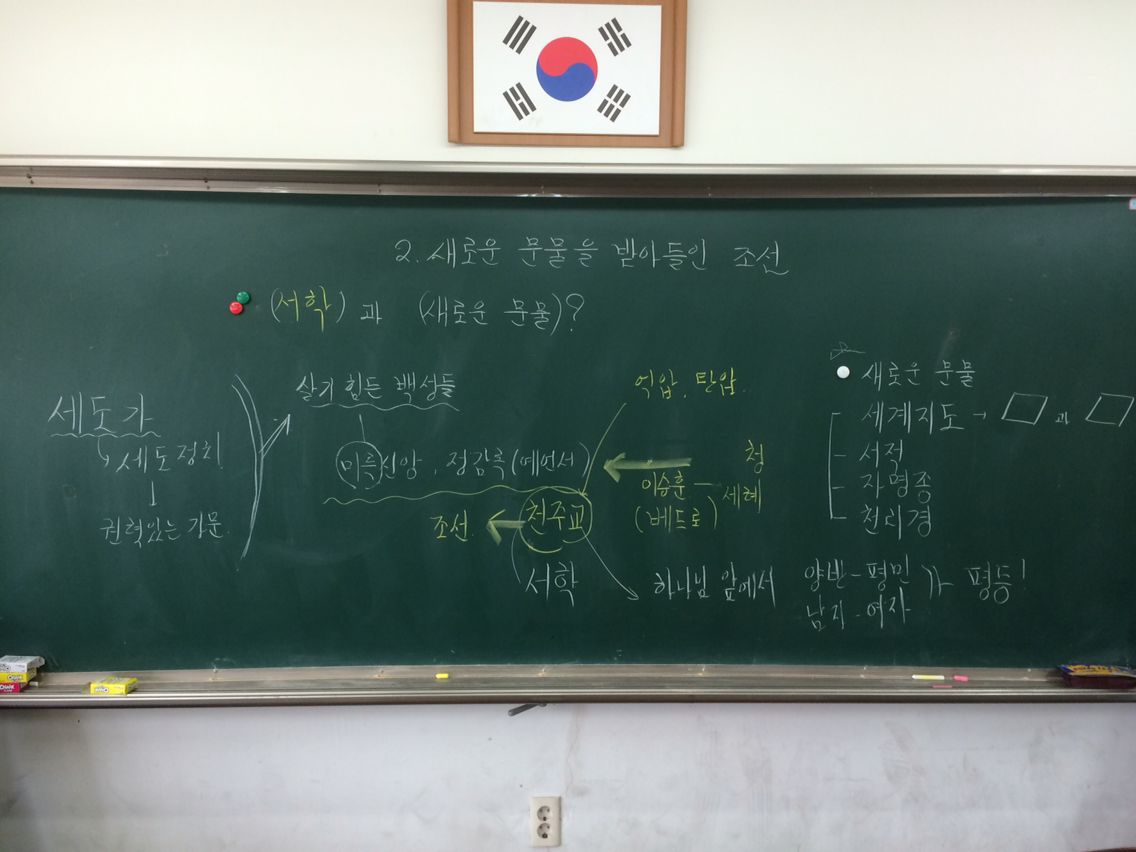 2. 새로운 문물을 받아들인 조선
(서학) 과 (새로운 문물)?
세도가
세도정치
권력있는 가문.
살기 힘든 백성들
미륵신앙, 정감록(예언서)
억압, 탄압.
청
이승훈 세례
(베드로)
조선. 천주교
서학
하나님 앞에서
양반-평민
남자-여자
평등!
새로운 문물
세계지도 → 과
서적
자명종
천리경